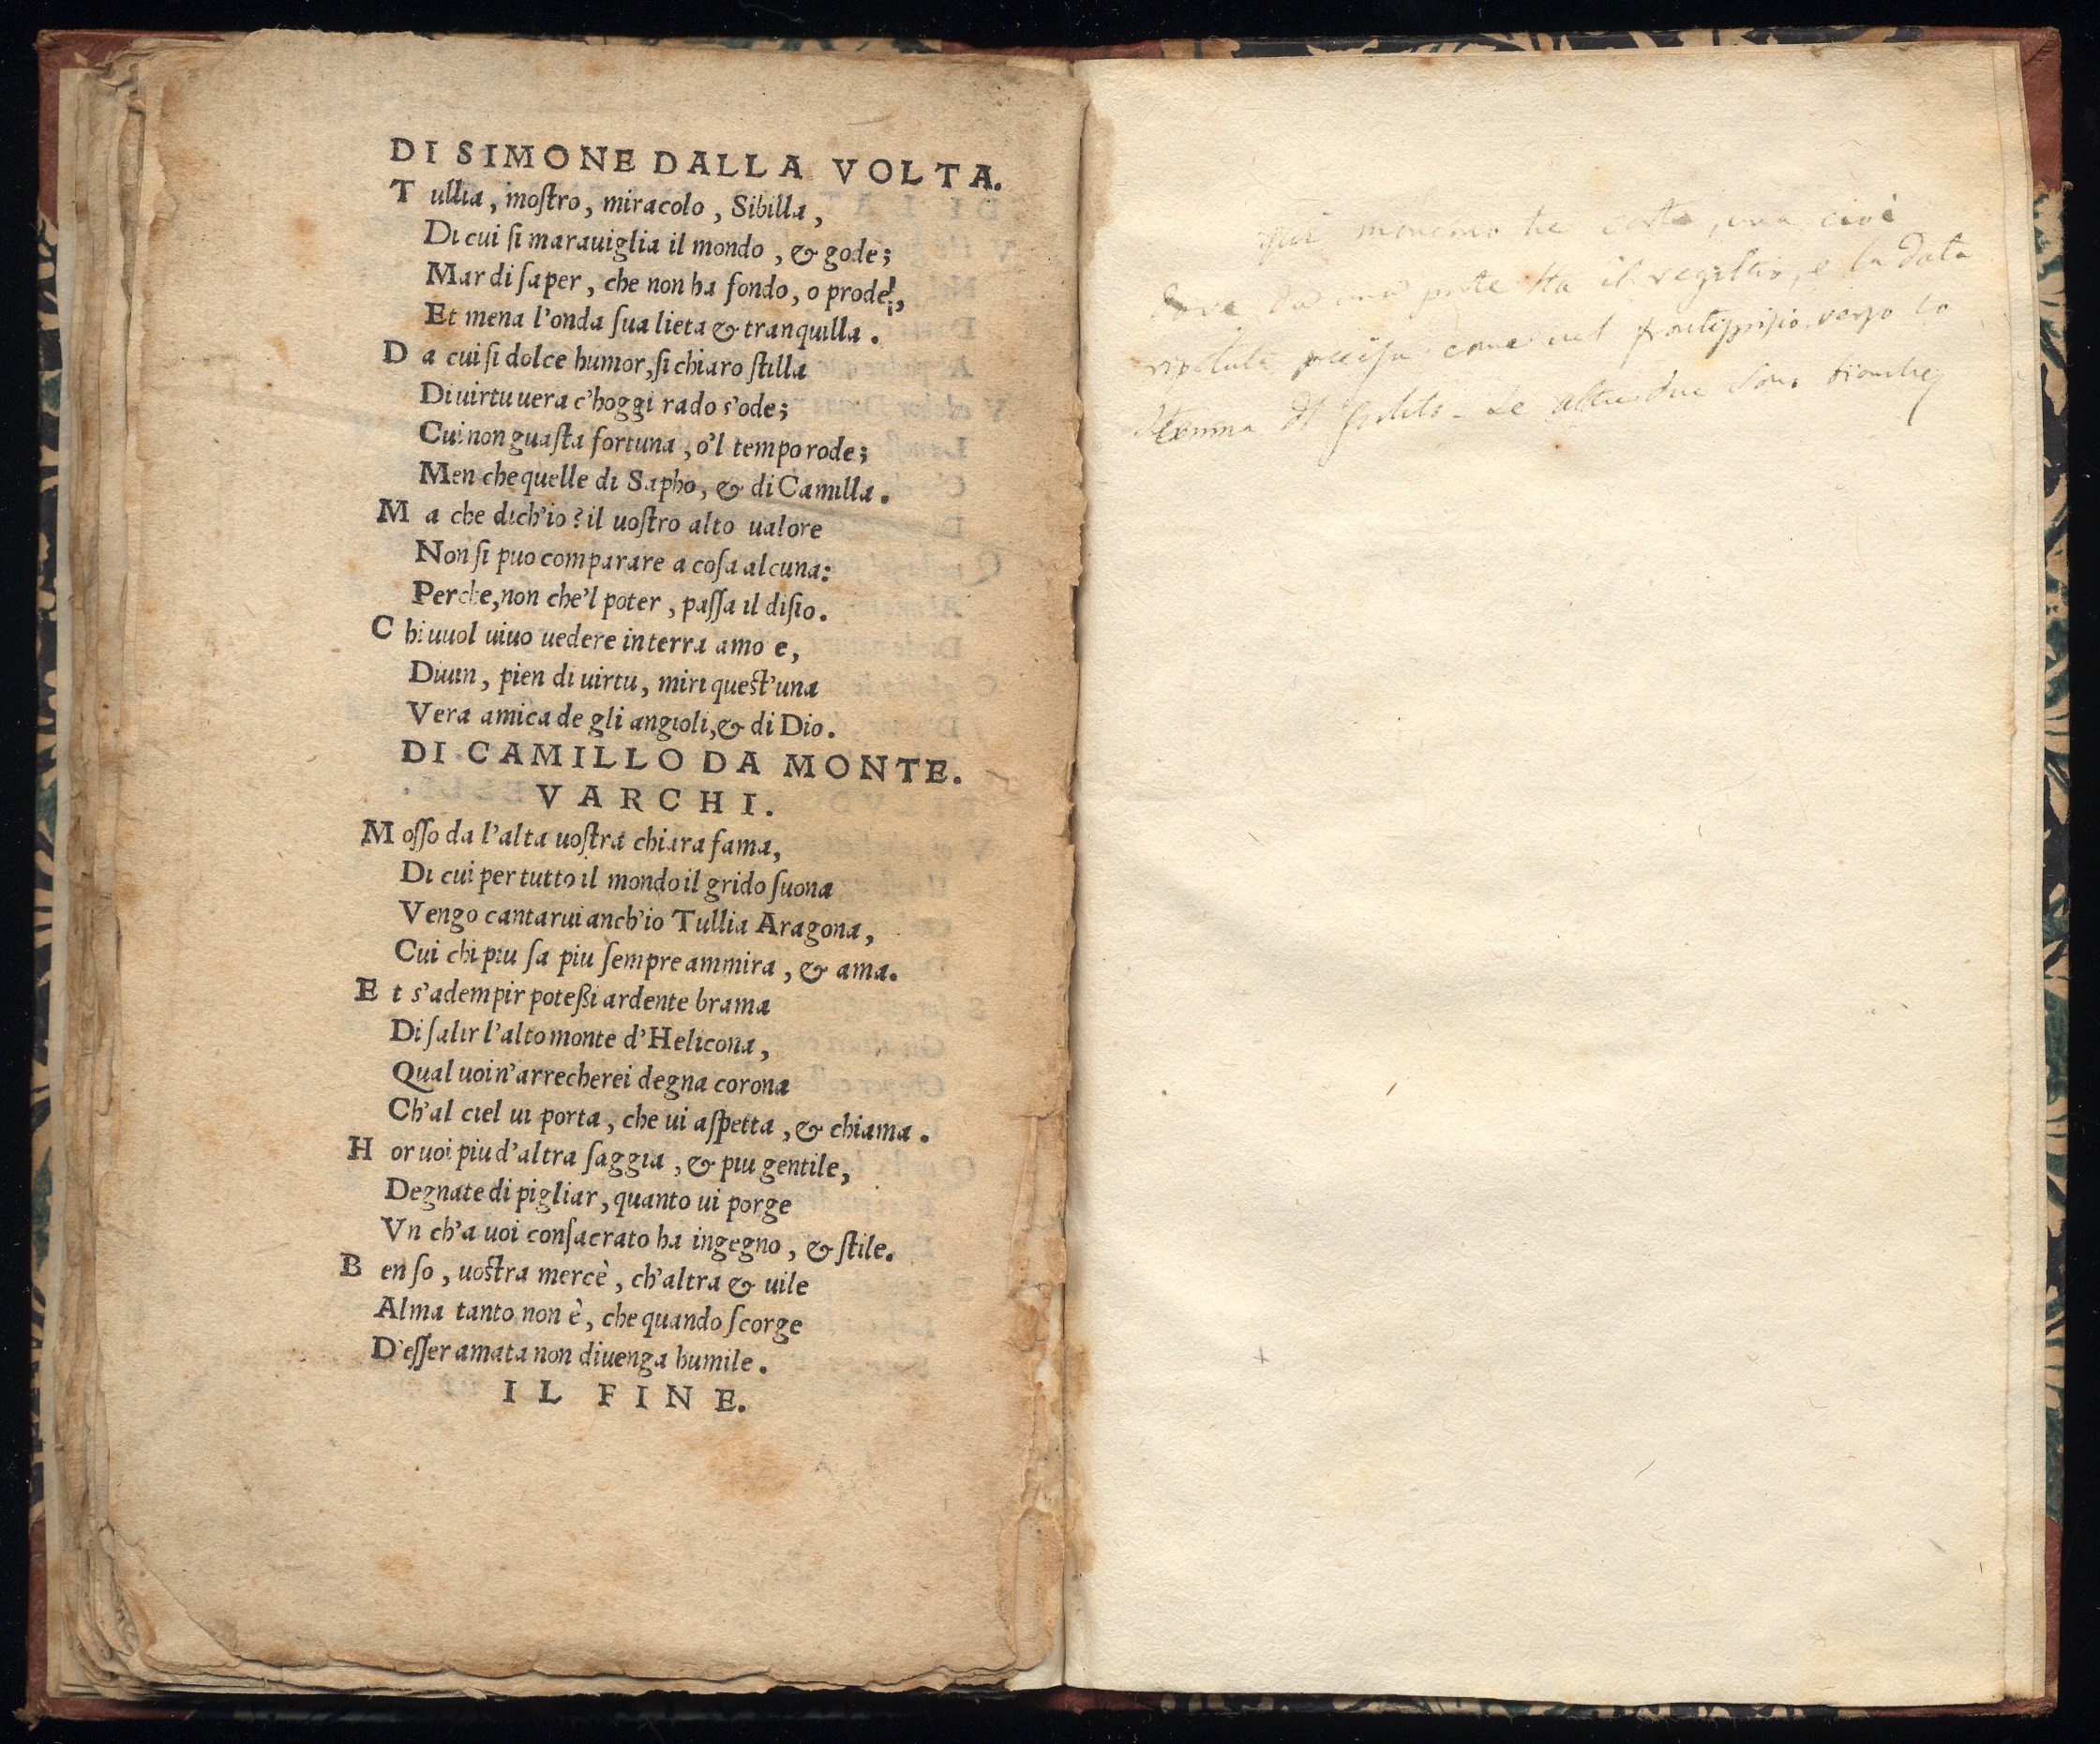 DI SIMONE DALLA VOLTA.
Tullia, mostro, miracolo, Sibilla,
Di cui si marauiglia il mondo, & gode;
Mar di saper, che non ha fondo, o prode,
Et mena l'onda sua lieta & tranquilla.
Da cui si dolce humor, si chiaro stilla
Di uirtu uera c'hoggi rado s'ode;
Cui non guasta fortuna, o'l tempo rode;
Men che quelle di Sapho, & di Camilla.
Ma che dich'io? il uostro alto ualore
Non si puo comparare a cosa alcuna:
Perche, non che'l poter, passa il disio.
Chi uuol uiuo uedere in terra amo e,
Diuin, pien di uirtu, miri quest'una
Vera amica de gli angioli, & di Dio.
DI CAMILLO DA MONTE.
VARCHI.
Mosso da l'alta uostra chiara fama,
Di cui per tutto il mondo il grido suona
Vengo cantarui anch'io Tullia Aragona,
Cui chi piu sa piu sempre ammira, & ama.
Et s'adempir potessi ardente brama
Di salir l'alto monte d'Helicona,
Qual uoi n'arrecherei degna corona
Ch'al ciel ui porta, che ui aspetta, & chiama.
Hor uoi piu d'altra saggia, & piu gentile,
Degnate di pigliar, quanto ui porge
Vn ch'a uoi consacrato ha ingegno, & stile.
Ben so, uostra mercè, ch'altra & uile
Alma tanto non è, che quando scorge
D'esser amata non diuenga humile.
IL FINE.
tre carte, una cioè
da una parte sta il registro, e la data
ripetuta come nel frontispizio, verso lo
stemma. Le altre due sono bianche